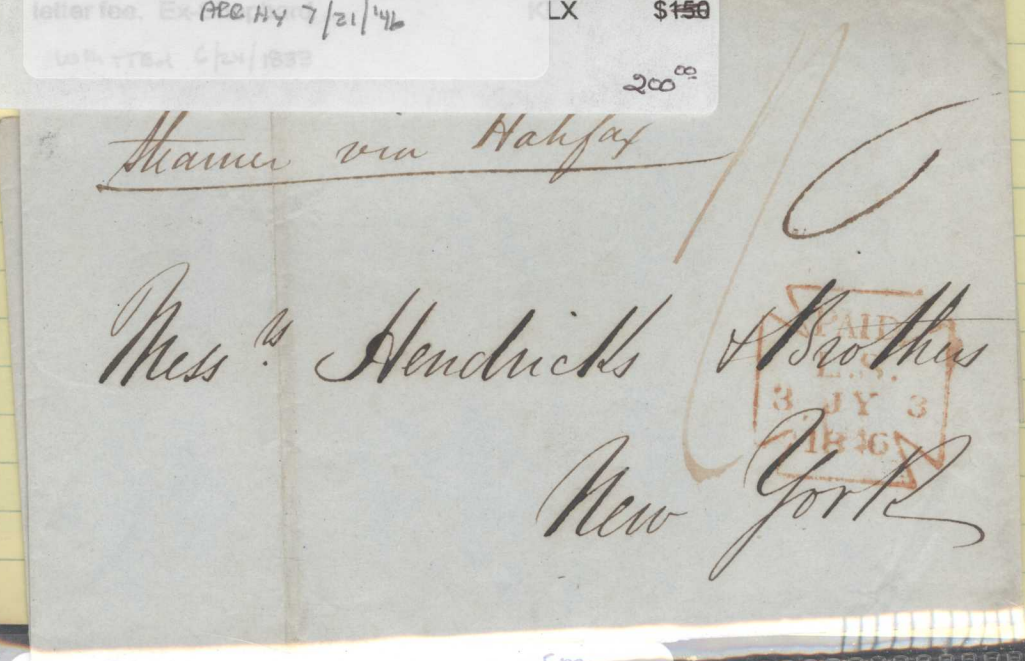 letter fee. Ex-
LX $150
ARR NY 7/21/'46
WRITTEN 6/24/1833
200 00
Steamer via Halifax
Mess rs Hendricks & Brothers
New York
PAID
L.S.
3 JY 3
1846